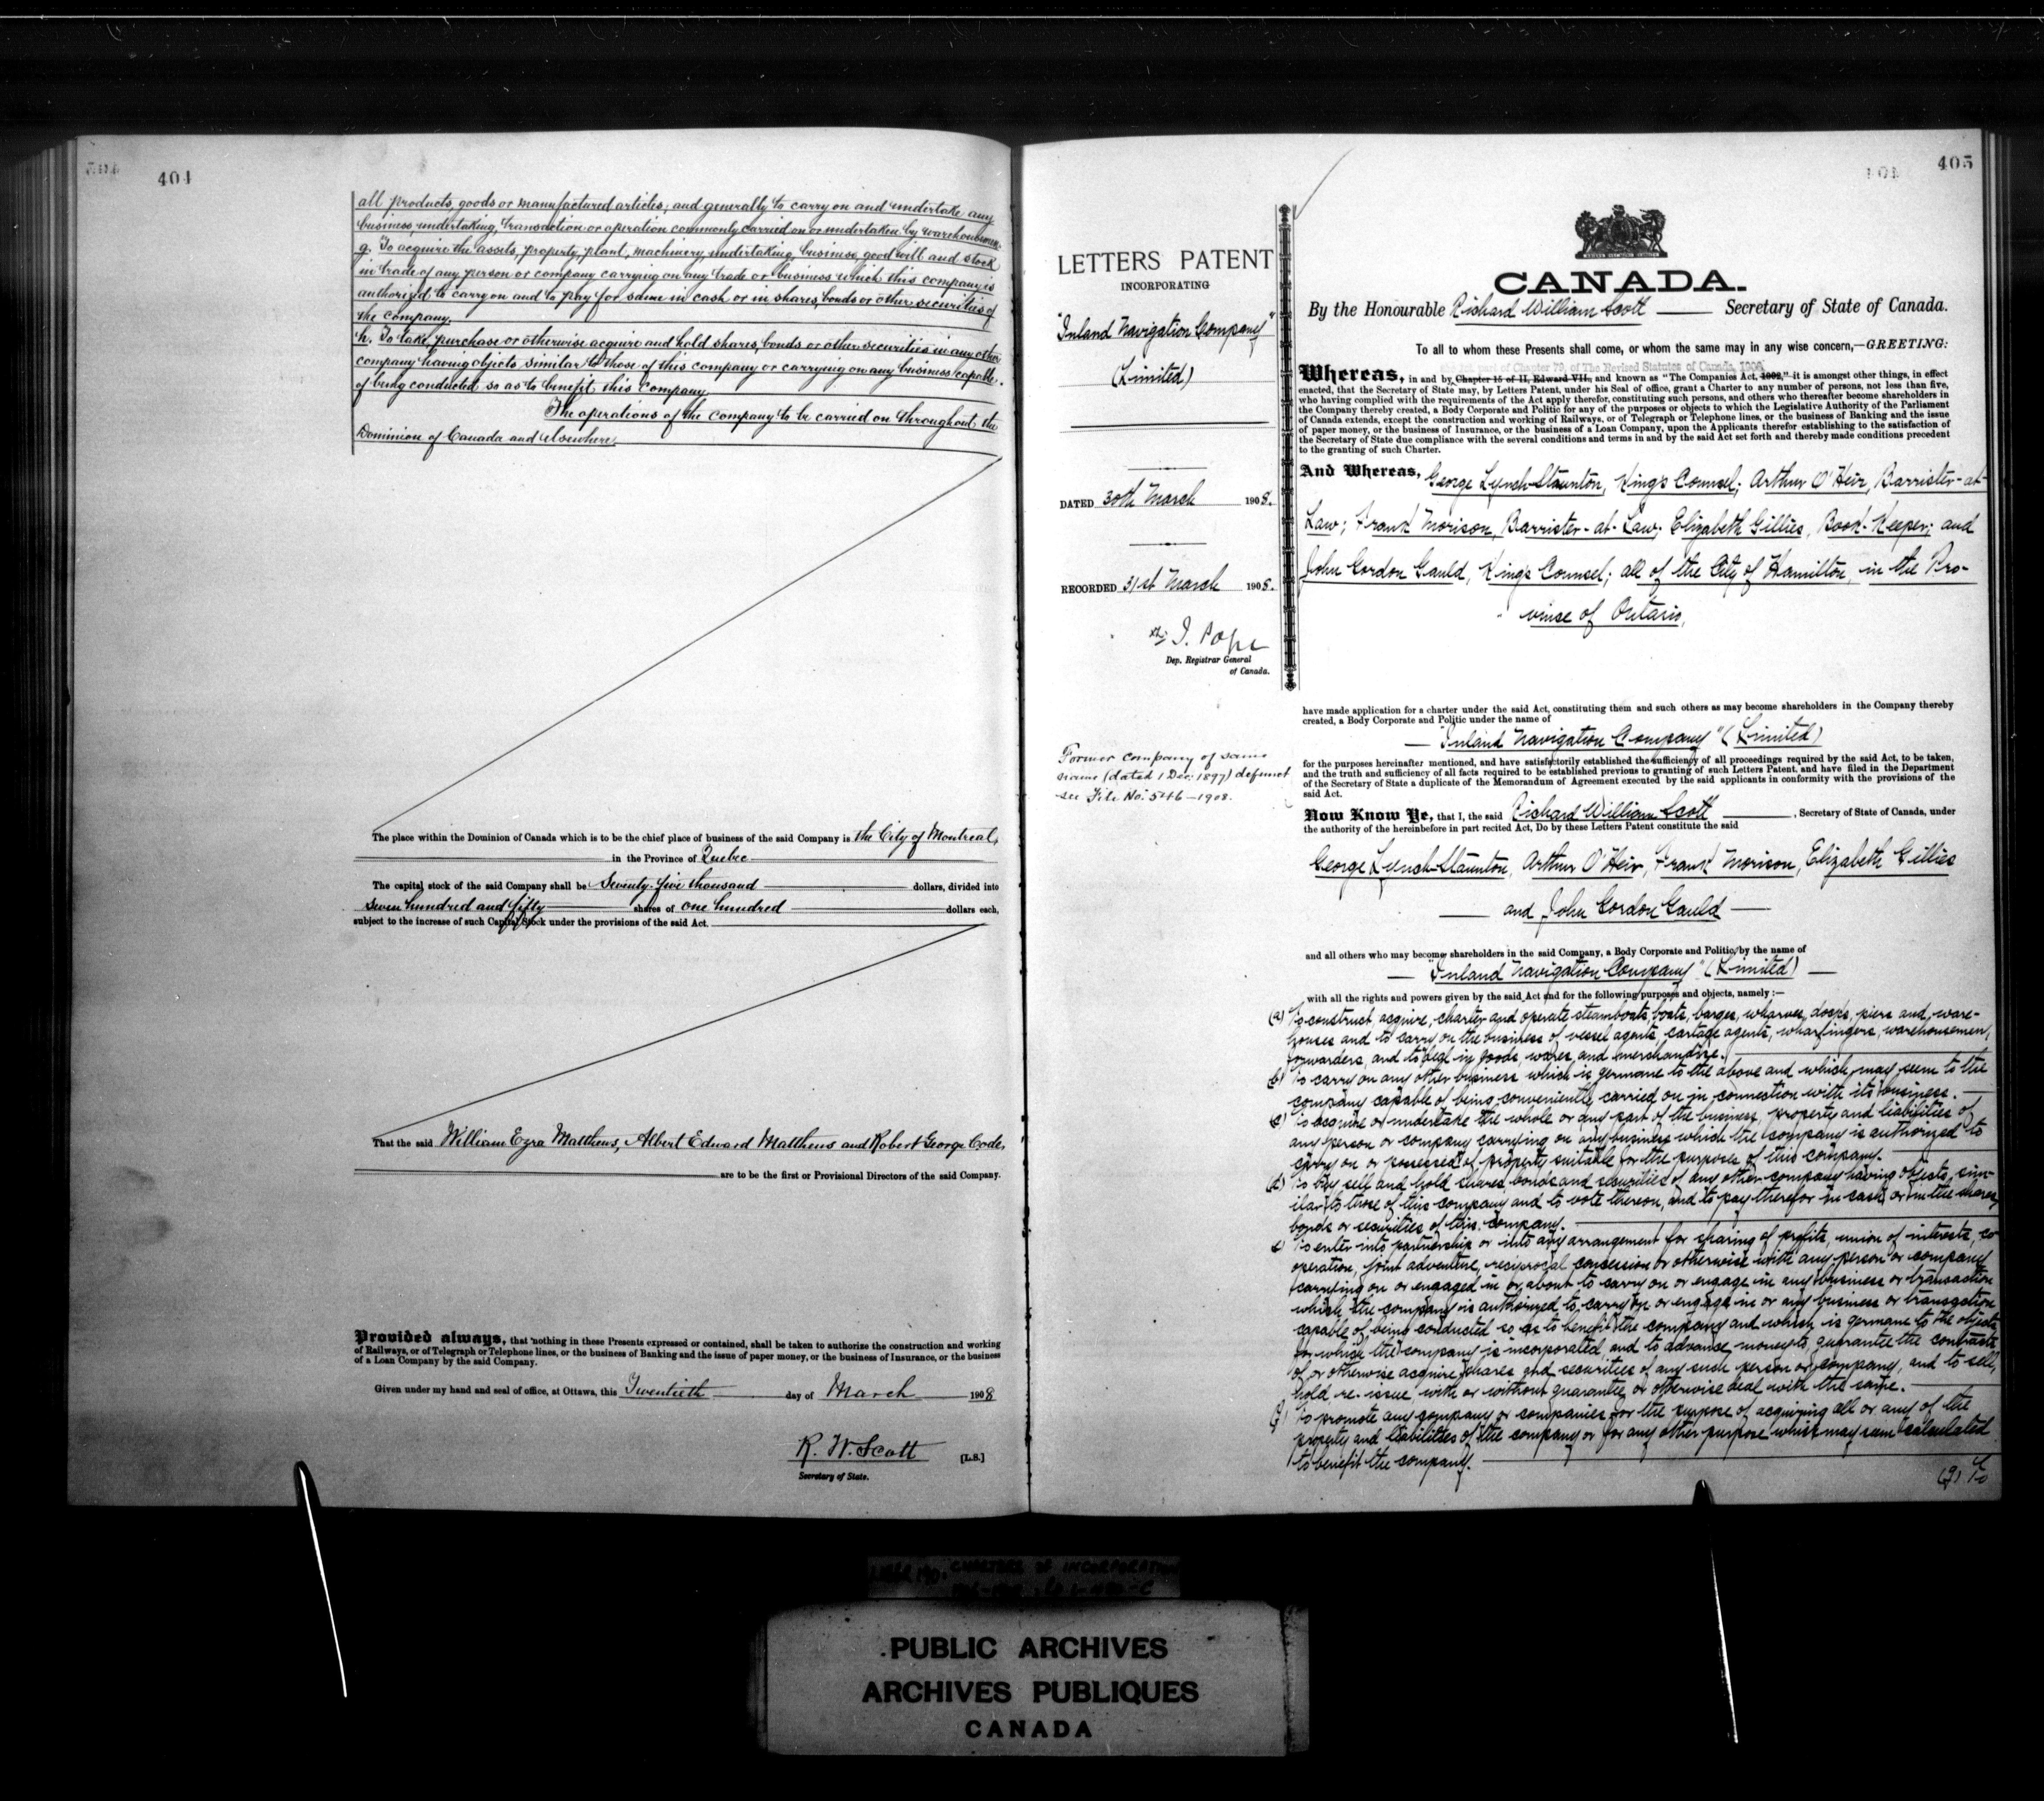 404
all products, goods or manufactured articles; and generally to carry on and undertake any
business, undertaking, transaction or operation commonly carried on or undertaken by warehousemen.
g. To acquire the assets, property, plant, machinery, undertaking, business, good will and stock
in trade of any person or company carrying on any trade or business which this company is
authorized to carry on and to pay for same in cash or in shares, bonds or other securities of
the company.
h. To take, purchase or otherwise acquire and hold shares, bonds or other securities in any other
company having objects similar to those of this company or carrying on any business capable
of being conducted so as to benefit this company.
The operations of the company to be carried on throughout the
Dominion of Canada and elsewhere.
The place within the Dominion of Canada which is to be the chief place of business of the said Company is the City of Montreal,
in the Province of Quebec
The capital stock of the said Company shall be Seventy-five thousand dollars, divided into
Seven hundred and fifty shares of one hundred dollars each,
subject to the increase of such Capital Stock under the provisions of the said Act.
That the said William Ezra Matthews, Albert Edward Matthews and Robert George Code,
are to be the first or Provisional Directors of the said Company.
Provided always, that nothing in these Presents expressed or contained, shall be taken to authorize the construction and working
of Railways, or of Telegraph or Telephone lines, or the business of Banking and the issue of paper money, or the business of Insurance, or the business
of a Loan Company by the said Company.
Given under my hand and seal of office, at Ottawa, this Twentieth day of March 1908
R. W. Scott [L.S.]
Secretary of State.
405
LETTERS PATENT
INCORPORATING
"Inland Navigation Company"
(Limited)
DATED 30th March 1908.
RECORDED 31st March 1908.
J. Pope
Dep. Registrar General
of Canada.
Former company of same
name (dated 1 Dec. 1897) defunct
see File No. 546-1908.
CANADA.
By the Honourable Richard William Scott Secretary of State of Canada.
To all to whom these Presents shall come, or whom the same may in any wise concern,—GREETING:
part of Chapter 79, of The Revised Statutes of Canada, 1906,
Whereas, in and by Chapter 15 of II, Edward VII., and known as "The Companies Act, 1902," it is amongst other things, in effect
enacted, that the Secretary of State may, by Letters Patent, under his Seal of office, grant a Charter to any number of persons, not less than five,
who having complied with the requirements of the Act apply therefor, constituting such persons, and others who thereafter become shareholders in
the Company thereby created, a Body Corporate and Politic for any of the purposes or objects to which the Legislative Authority of the Parliament
of Canada extends, except the construction and working of Railways, or of Telegraph or Telephone lines, or the business of Banking and the issue
of paper money, or the business of Insurance, or the business of a Loan Company, upon the Applicants therefor establishing to the satisfaction of
the Secretary of State due compliance with the several conditions and terms in and by the said Act set forth and thereby made conditions precedent
to the granting of such Charter.
And Whereas, George Lynch-Staunton, King's Counsel; Arthur O'Heir, Barrister-at-
Law; Frank Morison, Barrister-at-Law; Elizabeth Gillies, Book-Keeper; and
John Gordon Gauld, King's Counsel; all of the City of Hamilton, in the Pro-
vince of Ontario,
have made application for a charter under the said Act, constituting them and such others as may become shareholders in the Company thereby
created, a Body Corporate and Politic under the name of
"Inland Navigation Company" (Limited)
for the purposes hereinafter mentioned, and have satisfactorily established the sufficiency of all proceedings required by the said Act, to be taken,
and the truth and sufficiency of all facts required to be established previous to granting of such Letters Patent, and have filed in the Department
of the Secretary of State a duplicate of the Memorandum of Agreement executed by the said applicants in conformity with the provisions of the
said Act.
Now Know Ye, that I, the said Richard William Scott, Secretary of State of Canada, under
the authority of the hereinbefore in part recited Act, Do by these Letters Patent constitute the said
George Lynch-Staunton, Arthur O'Heir, Frank Morison, Elizabeth Gillies
and John Gordon Gauld
and all others who may become shareholders in the said Company, a Body Corporate and Politic, by the name of
"Inland Navigation Company" (Limited)
with all the rights and powers given by the said Act and for the following purposes and objects, namely :—
(a) To construct, acquire, charter and operate steamboats, boats, barges, wharves, docks, piers and ware-
houses and to carry on the business of vessel agents, cartage agents, wharfingers, warehousemen,
forwarders, and to deal in goods, wares, and merchandize.
(b) To carry on any other business which is germane to the above and which may seem to the
company capable of being conveniently carried on in connection with its business.
(c) To acquire or undertake the whole or any part of the business, property and liabilities of
any person or company carrying on any business which the company is authorized to
carry on or possessed of property suitable for the purposes of this company.
(d) To buy sell and hold shares bonds and securities of any other company having objects sim-
ilar to those of this company and to vote thereon, and to pay therefor in cash or in the shares,
bonds or securities of this company.
(e) To enter into partnership or into any arrangement for sharing of profits, union of interests, co-
operation, joint adventure, reciprocal concession or otherwise with any person or company
carrying on or engaged in or about to carry on or engage in any business or transaction
which the company is authorized to carry on or engage in or any business or transaction
capable of being conducted so as to benefit the company and which is germane to the objects
for which the company is incorporated and to advance money to, guarantee the contracts
of, or otherwise acquire shares and securities of any such person or company, and to sell,
hold re-issue, with or without guarantee or otherwise deal with the same.
(f) To promote any company or companies for the purpose of acquiring all or any of the
property and liabilities of the company or for any other purpose which may seem calculated
to benefit the company.
(g) To
CHARTERS OF INCORPORATION
PUBLIC ARCHIVES
ARCHIVES PUBLIQUES
CANADA